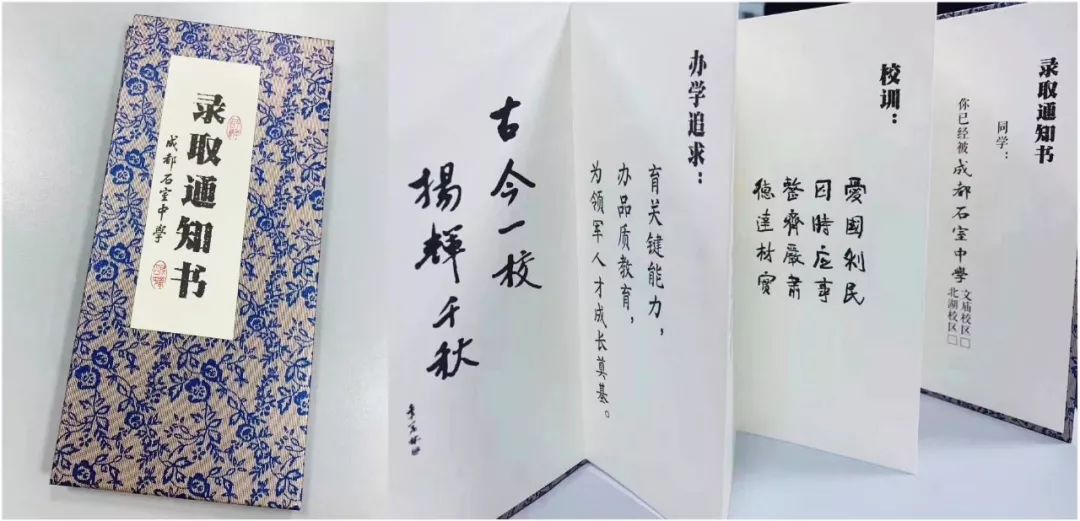 录取通知书
成都石室中學
古今一校
揚輝千秋
办学追求：
育关键能力，
办品质教育，
为领军人才成长奠基。
校训：
愛國利民
因時应事
整齊嚴肅
德達材實
录取通知书
同学：
你已经被成都石室中學
文庙校区□
北湖校区□